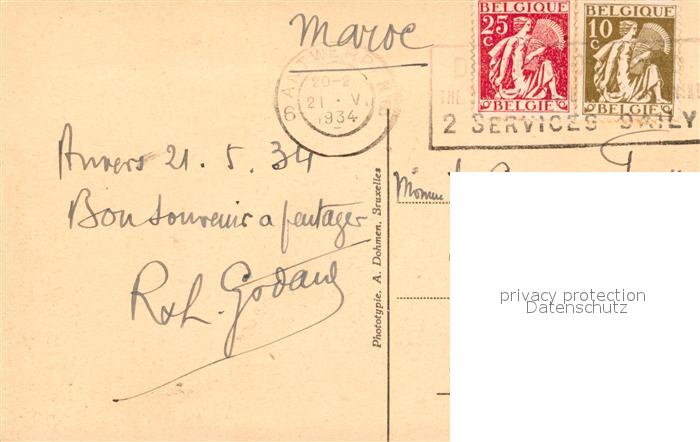 Maroc
BELGIQUE
25
C
BELGIE
BELGIQUE
10
C
BELGIE
6 ANTWERPEN 6
20-2
21 · V
1934
THE
2 SERVICES DAILY
Anvers 21.5.34
Bon souvenir a partager
R & L. Godard
Phototypie. A. Dohmen, Bruxelles
privacy protection
Datenschutz